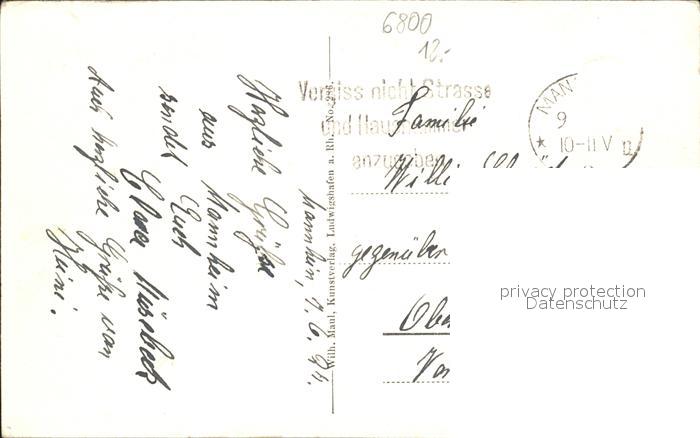 6800
12.-
Vergiss nicht Strasse
und Hausnummer
anzugeben
MAN
9
10-11 V
Mannheim, 9. 6.
Herzliche Grüße
aus Mannheim
sendet Euch
Clara
Auch herzliche Grüße von
Heini.
Wilh. Maul, Kunstverlag, Ludwigshafen a. Rh. No.
Familie
Willi
gegenüber
privacy protection
Datenschutz